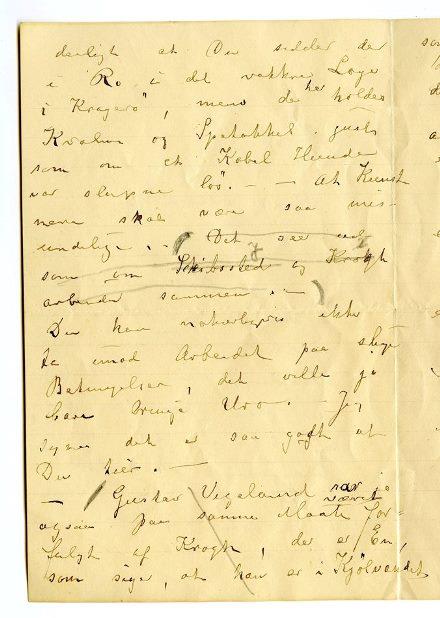 deiligt at Du sidder der
i Ro i det vakkre Loge
i Kragerö, mens de her holdes
Kvalm og Spetakkel. gusls
som om et Kobel Hunde
var slupne lös. — — At Kunst
nerne skal være saa mis-
undelige. . ( Det ser ud
som om Schibsted og Krogh
arbeider sammen . — )
Du kan naturligvis ikke
ta imod Arbeidet paa slige
Betingelser, det ville jo
bare bringe Uro. — Jeg
synes det er saa godt at
Du hier. —
— Gustav Vigeland var jo
været
ogsaa paa samme Maate for-
fulgt af Krogh, der er En,
som siger, at han er i Kjölvandet